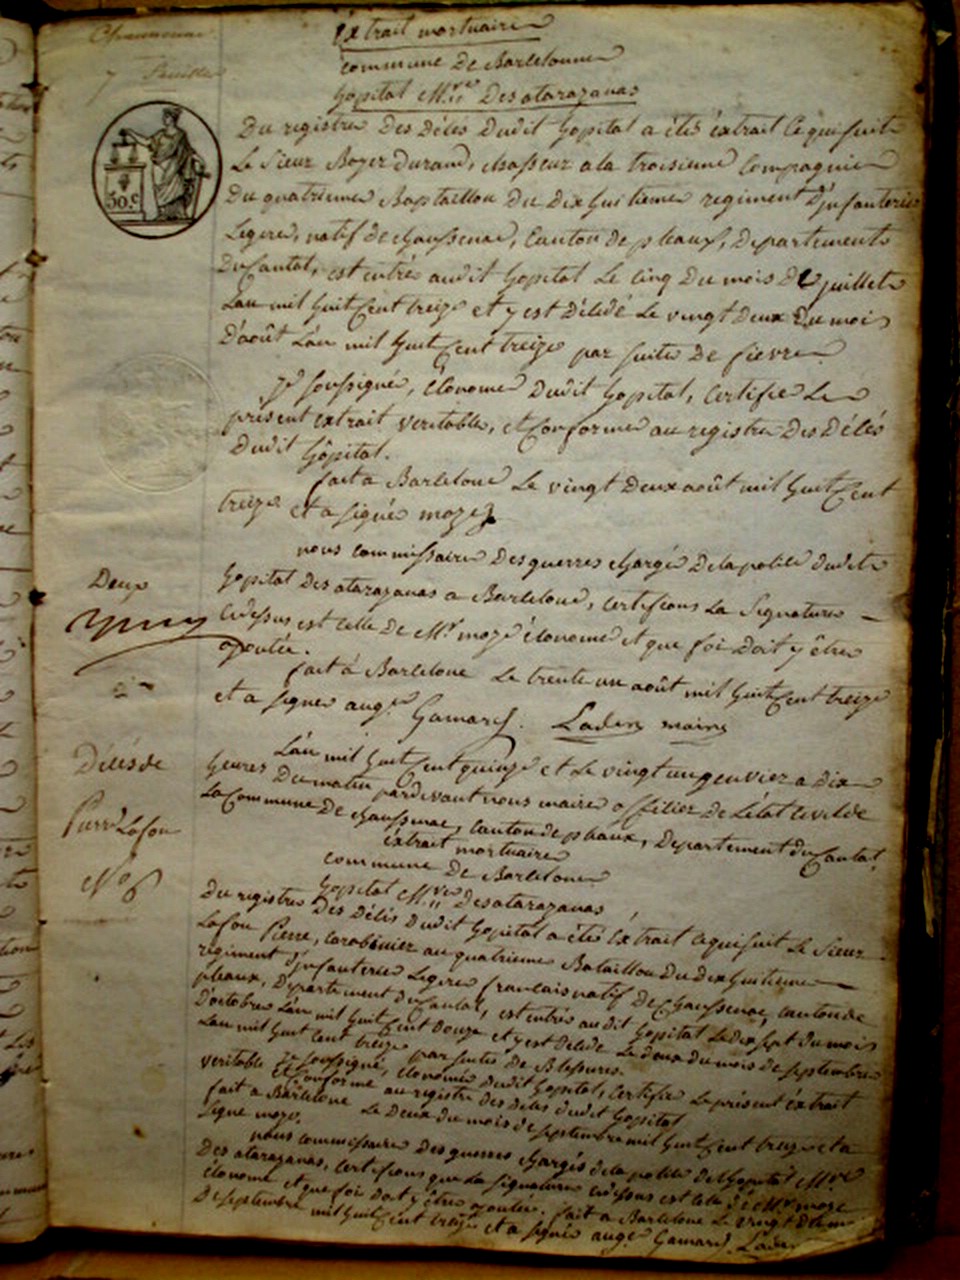 Chaussenac
7 feuillet
Extrait mortuaire
commune de Barcelonne
hopital M.re Desatarazanas
30.c
Du registre Des Décés Dudit hopital a étés éxtrait Ce qui suit
Le Sieur Boyer Durand, chasseur a la troisieme Compagnie
Du quatrieme Baptaillon Du Dix huitieme regiment D'jnfanterie
Legere, natif de chaussenac, Canton de pleaux, Departement
Du Cantal, est entré audit hopital Le cinq Du mois De juillet
Lan mil huit Cent treize et y est Décédé Le vingt Deux Du mois
D'août L'an mil huit Cent treize par suite De fievre
Je soussigné, économe Dudit hopital, Certifie Le
présent extrait veritable, et Conforme au registre Des Décés
Dudit hôpital.
fait a Barcelone Le vingt Deux août mil huit Cent
treize et a signé moze
nous commissaire Des guerres chargé De la police dudit
hopital Des atarazanas a Barcelone, certifions La Signature
Cidessus est celle De Mr moze économe et que foi Doit y être
ajoutée.
fait à Barcelone Le trente un août mil huit Cent treize
et a signé aug.e Gamard.
Deux
Décés de
Pierre Lafon
No 6
L'an mil huit Cent quinze et Le vingt un genvier a Dix
heures Du matin pardevant nous maire officier De L'état Civil de
La Commune De chaussenac, Canton de pleaux, Departement du Cantal,
éxtrait mortuaire
commune De Barcelone
hopital M.re Desatarazanas
Du registre Des Décés Dudit hopital a étés Extrait Cequi suit Le Sieur
Lafon Pierre, Carabinier au quatrieme Bataillon Du Dix huitieme
regiment D'jnfanterie Legere francais natif de Chaussenac, canton de
pleaux, Departement du Cantal, est entré audit hopital Le dix sept Du mois
D'octobre L'an mil huit Cent Douze et y est Décédé Le Deux du mois de septembre
Lan mil huit Cent treize par suites De Blessures.
Je soussigné, économe Dudit hopital, Certifie Le présent extrait
veritable et Conforme au registre Des Décés Dudit hopital
fait a Barcelone Le Deux du mois de septembre mil huit Cent treize et a
signé moze.
nous commissaire Des guerres chargés de la police de Lhopital M.re
Des atarazanas, Certifions que La signature cidessus est celle de Mr moze
économe et que foi Doit y être ajoutée. fait a Barcelone Le vingt
De septembre mil huit Cent treize et a signé aug.e Gamard.